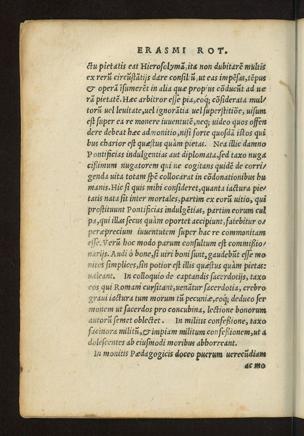 ERASMI ROT.
ctu pietatis eat Hierosolymā, ita non dubitarē multis
ex rerū circūstātijs dare consiliū, ut eas impēsas, tēpus
& operā īsumerēt in alia quæ propius cōducūt ad ue
rā pietatē. Hæc arbitror esse pia, eoq; cōsiderata mul/
torū uel leuitate, uel ignorātia uel superstitiōe, uisum
est super ea re monere iuuentutē, neq; uideo quos offen
dere debeat hæc admonitio, nisi forte quosdā istos qui
bus charior est quæstus quàm pietas. Nec illic damno
Pontificias indulgentias aut diplomata, sed taxo nuga
cissimum nugatorem qui ne cogitans quidē de corri/
genda uita totam spē collocarat in cōdonationibus hu
manis. Hic si quis mihi consideret, quanta iactura pie/
tatis nata sit inter mortales, partim ex eorū uitio, qui
prostituunt Pontificias indulgētias, partim eorum cul
pa, qui illas secus quàm oportet accipiunt, fatebitur o/
peræprecium iuuentutem super hac re commonitam
esse. Verū hoc modo parum consultum est commissio/
narijs. Audi ô bone, si uiri boni sunt, gaudebūt esse mo
nitos simplices, sin potior est illis quæstus quàm pietas
ualeant. In colloquio de captandis sacerdotijs, taxo
eos qui Romam cursitant, uenātur sacerdotia, crebro
graui iactura tum morum tū pecuniæ, eoq; deduco ser
monem ut sacerdos pro concubina, lectione bonorum
autorū semet oblectet. In militis confeßione, taxo
facinora militū, & impiam militum confeßionem, ut a
dolescentes ab eiusmodi moribus abhorreant.
In monitis Pædagogicis doceo puerum uerecūdiam
ac mo